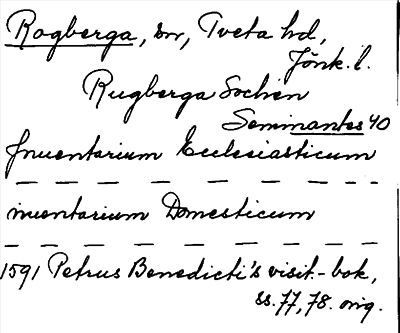 Rogberga, sn, Tveta hd,
Jönk. l.
Rugberga Sochen
Seminantes 40
Inuentarium Ecclesiasticum
— — — — — — — — —
inuentarium Domesticum
— — — — — — — — — —
1591 Petrus Benedicti's visit.-bok,
ss. 77, 78. orig.